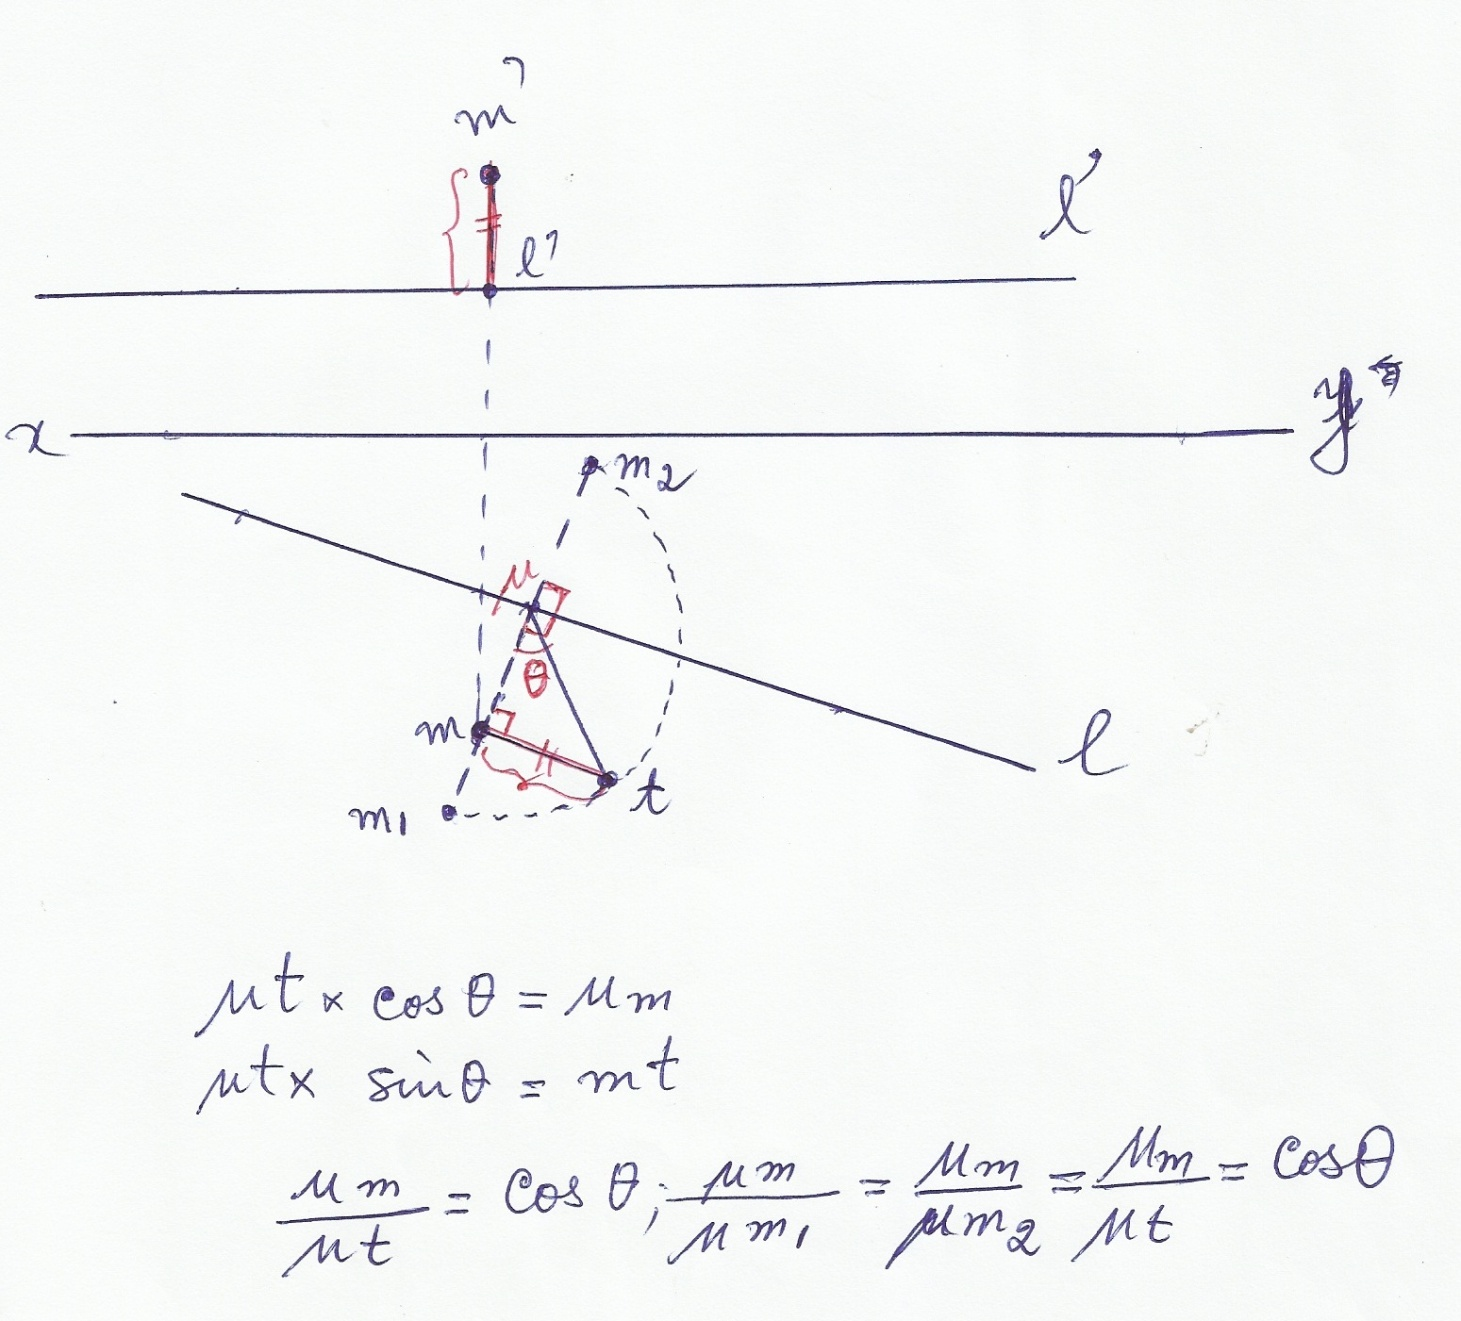 m'
l'
l'
x
y
m₂
μ
θ
m
l
m₁
t
μt × cos θ = μm
μt × sin θ = mt
μm/μt = cos θ ; μm/μm₁ = μm/μm₂ = μm/μt = cos θ